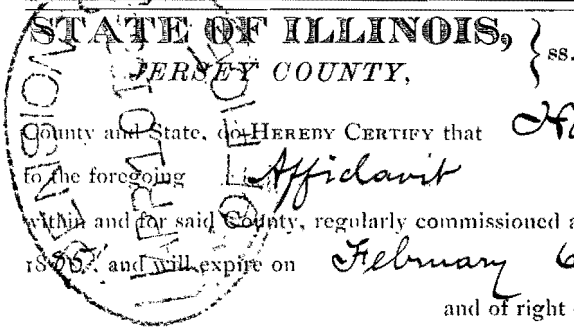 STATE OF ILLINOIS,
JERSEY COUNTY,
ss.
County and State, do HEREBY CERTIFY that
to the foregoing Affidavit
within and for said County, regularly commissioned
1885, and will expire on February 6
and of right
PENSION OFFICE
MAR 10